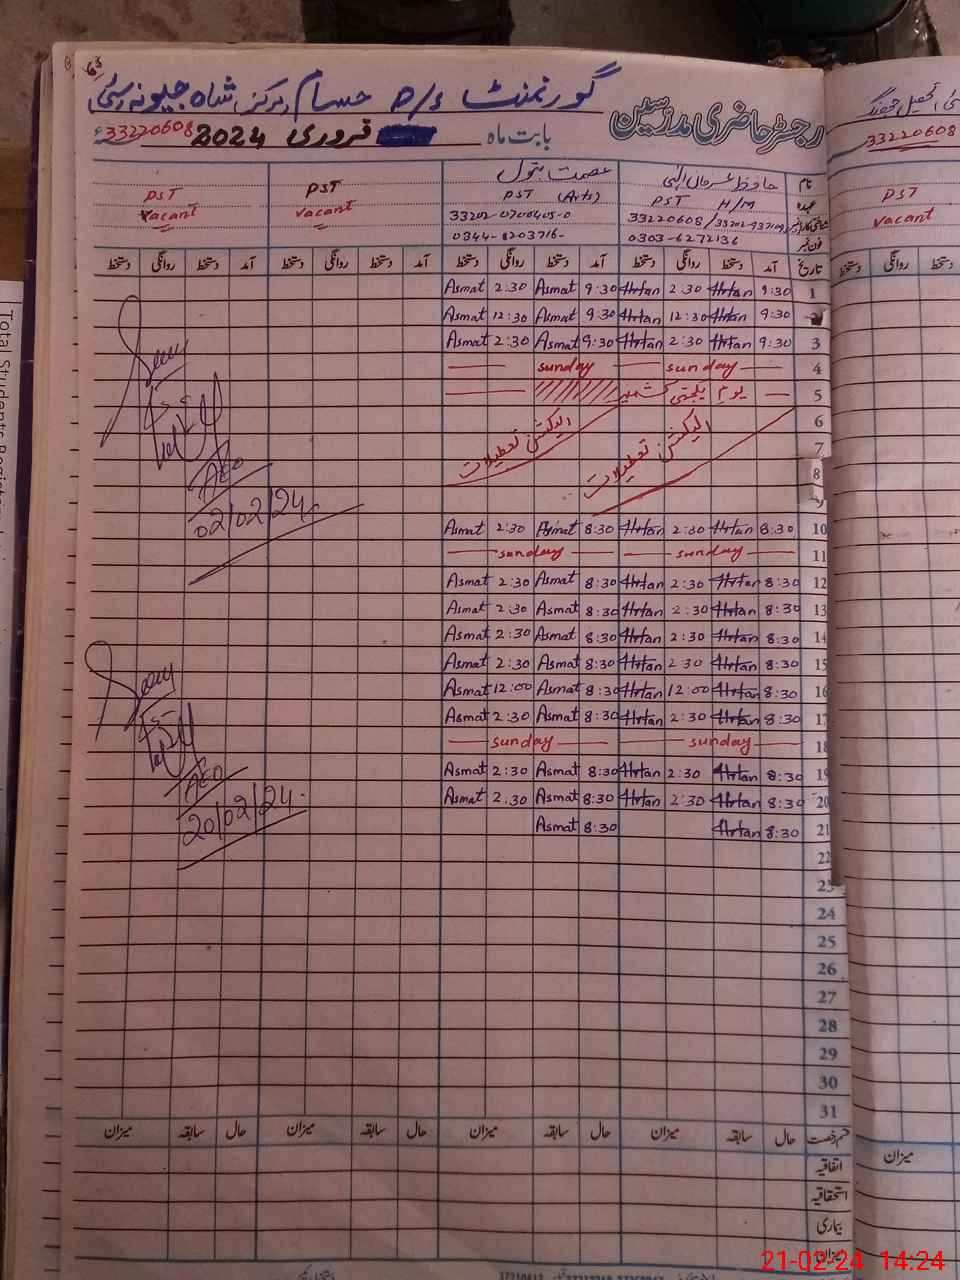 63
گورنمنٹ
حسام
مرکز شاہ جیونہ
رجسٹر حاضری مدرسین
بابت ماہ
فروری 2024
33220608
33220608
نام
حافظ
عصمت بتول
PST
PST
PST
عہدہ
PST H/M
PST (Arts)
vacant
vacant
vacant
33220608/
33202-0700405-0
فون نمبر
0303-6272136
0344-8203716-
تاریخ آمد دستخط روانگی دستخط آمد دستخط روانگی دستخط آمد دستخط روانگی دستخط آمد دستخط روانگی دستخط
1 9:30 Irfan 2:30 Irfan 9:30 Asmat 2:30 Asmat
9:30 Irfan 12:30 Irfan 9:30 Asmat 12:30 Asmat
3 9:30 Irfan 2:30 Irfan 9:30 Asmat 2:30 Asmat
4 sunday sunday
5 یوم یکجہتی کشمیر
6
7 الیکشن تعطیلات الیکشن تعطیلات
8
9
10 8:30 Irfan 2:30 Irfan 8:30 Asmat 2:30 Asmat
11 sunday sunday
12 8:30 Irfan 2:30 Irfan 8:30 Asmat 2:30 Asmat
13 8:30 Irfan 2:30 Irfan 8:30 Asmat 2:30 Asmat
14 8:30 Irfan 2:30 Irfan 8:30 Asmat 2:30 Asmat
15 8:30 Irfan 2:30 Irfan 8:30 Asmat 2:30 Asmat
16 8:30 Irfan 12:00 Irfan 8:30 Asmat 12:00 Asmat
17 8:30 Irfan 2:30 Irfan 8:30 Asmat 2:30 Asmat
18 sunday sunday
19 8:30 Irfan 2:30 Irfan 8:30 Asmat 2:30 Asmat
20 8:30 Irfan 2:30 Irfan 8:30 Asmat 2:30 Asmat
21 8:30 Irfan 8:30 Asmat
22
23
24
25
26
27
28
29
30
31
AEO
02/02/24
AEO
20/02/24
قسم رخصت حال سابقہ میزان حال سابقہ میزان حال سابقہ میزان حال سابقہ میزان
میزان
اتفاقیہ
استحقاقیہ
بیماری
میزان
21-02-24 14:24